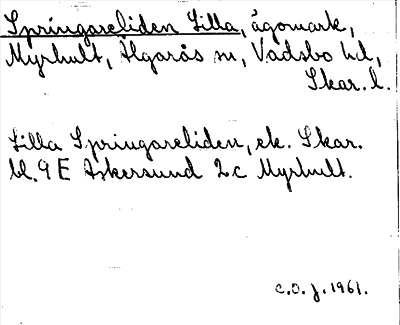 Springareliden Lilla, ägomark,
Myrhult, Älgarås sn, Vadsbo hd,
Skar. l.
Lilla Springareliden, ek. Skar.
bl. 9 E Askersund 2 c Myrhult.
C.O.J. 1961.